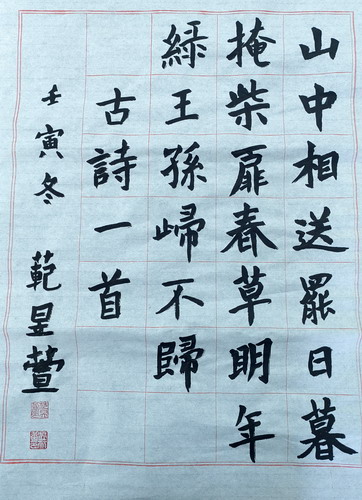 山中相送罷日暮
掩柴扉春草明年
綠王孫㱕不歸
古詩一首
壬寅冬 範昱萱